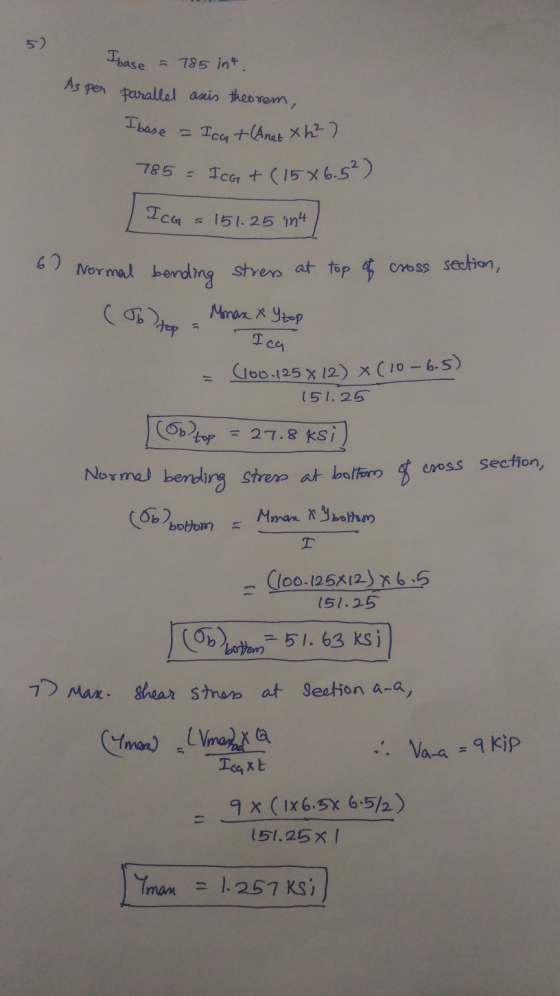 5)
I base = 785 in⁴.
As per parallel axis theorem,
I base = I CG + (Anet × h²)
785 = I CG + (15 × 6.5²)
I CG = 151.25 in⁴
6) Normal bending stress at top of cross section,
(σb)top = Mmax × ytop / I CG
= (100.125 × 12) × (10 - 6.5) / 151.25
(σb)top = 27.8 KSi
Normal bending stress at bottom of cross section,
(σb)bottom = Mmax × ybottom / I
= (100.125×12) × 6.5 / 151.25
(σb)bottom = 51.63 KSi
7) Max. shear stress at section a-a,
(τmax) = (Vmax) × Q / I CG × t ∴ Va-a = 9 kip
= 9 × (1×6.5× 6.5/2) / 151.25 × 1
τmax = 1.257 KSi